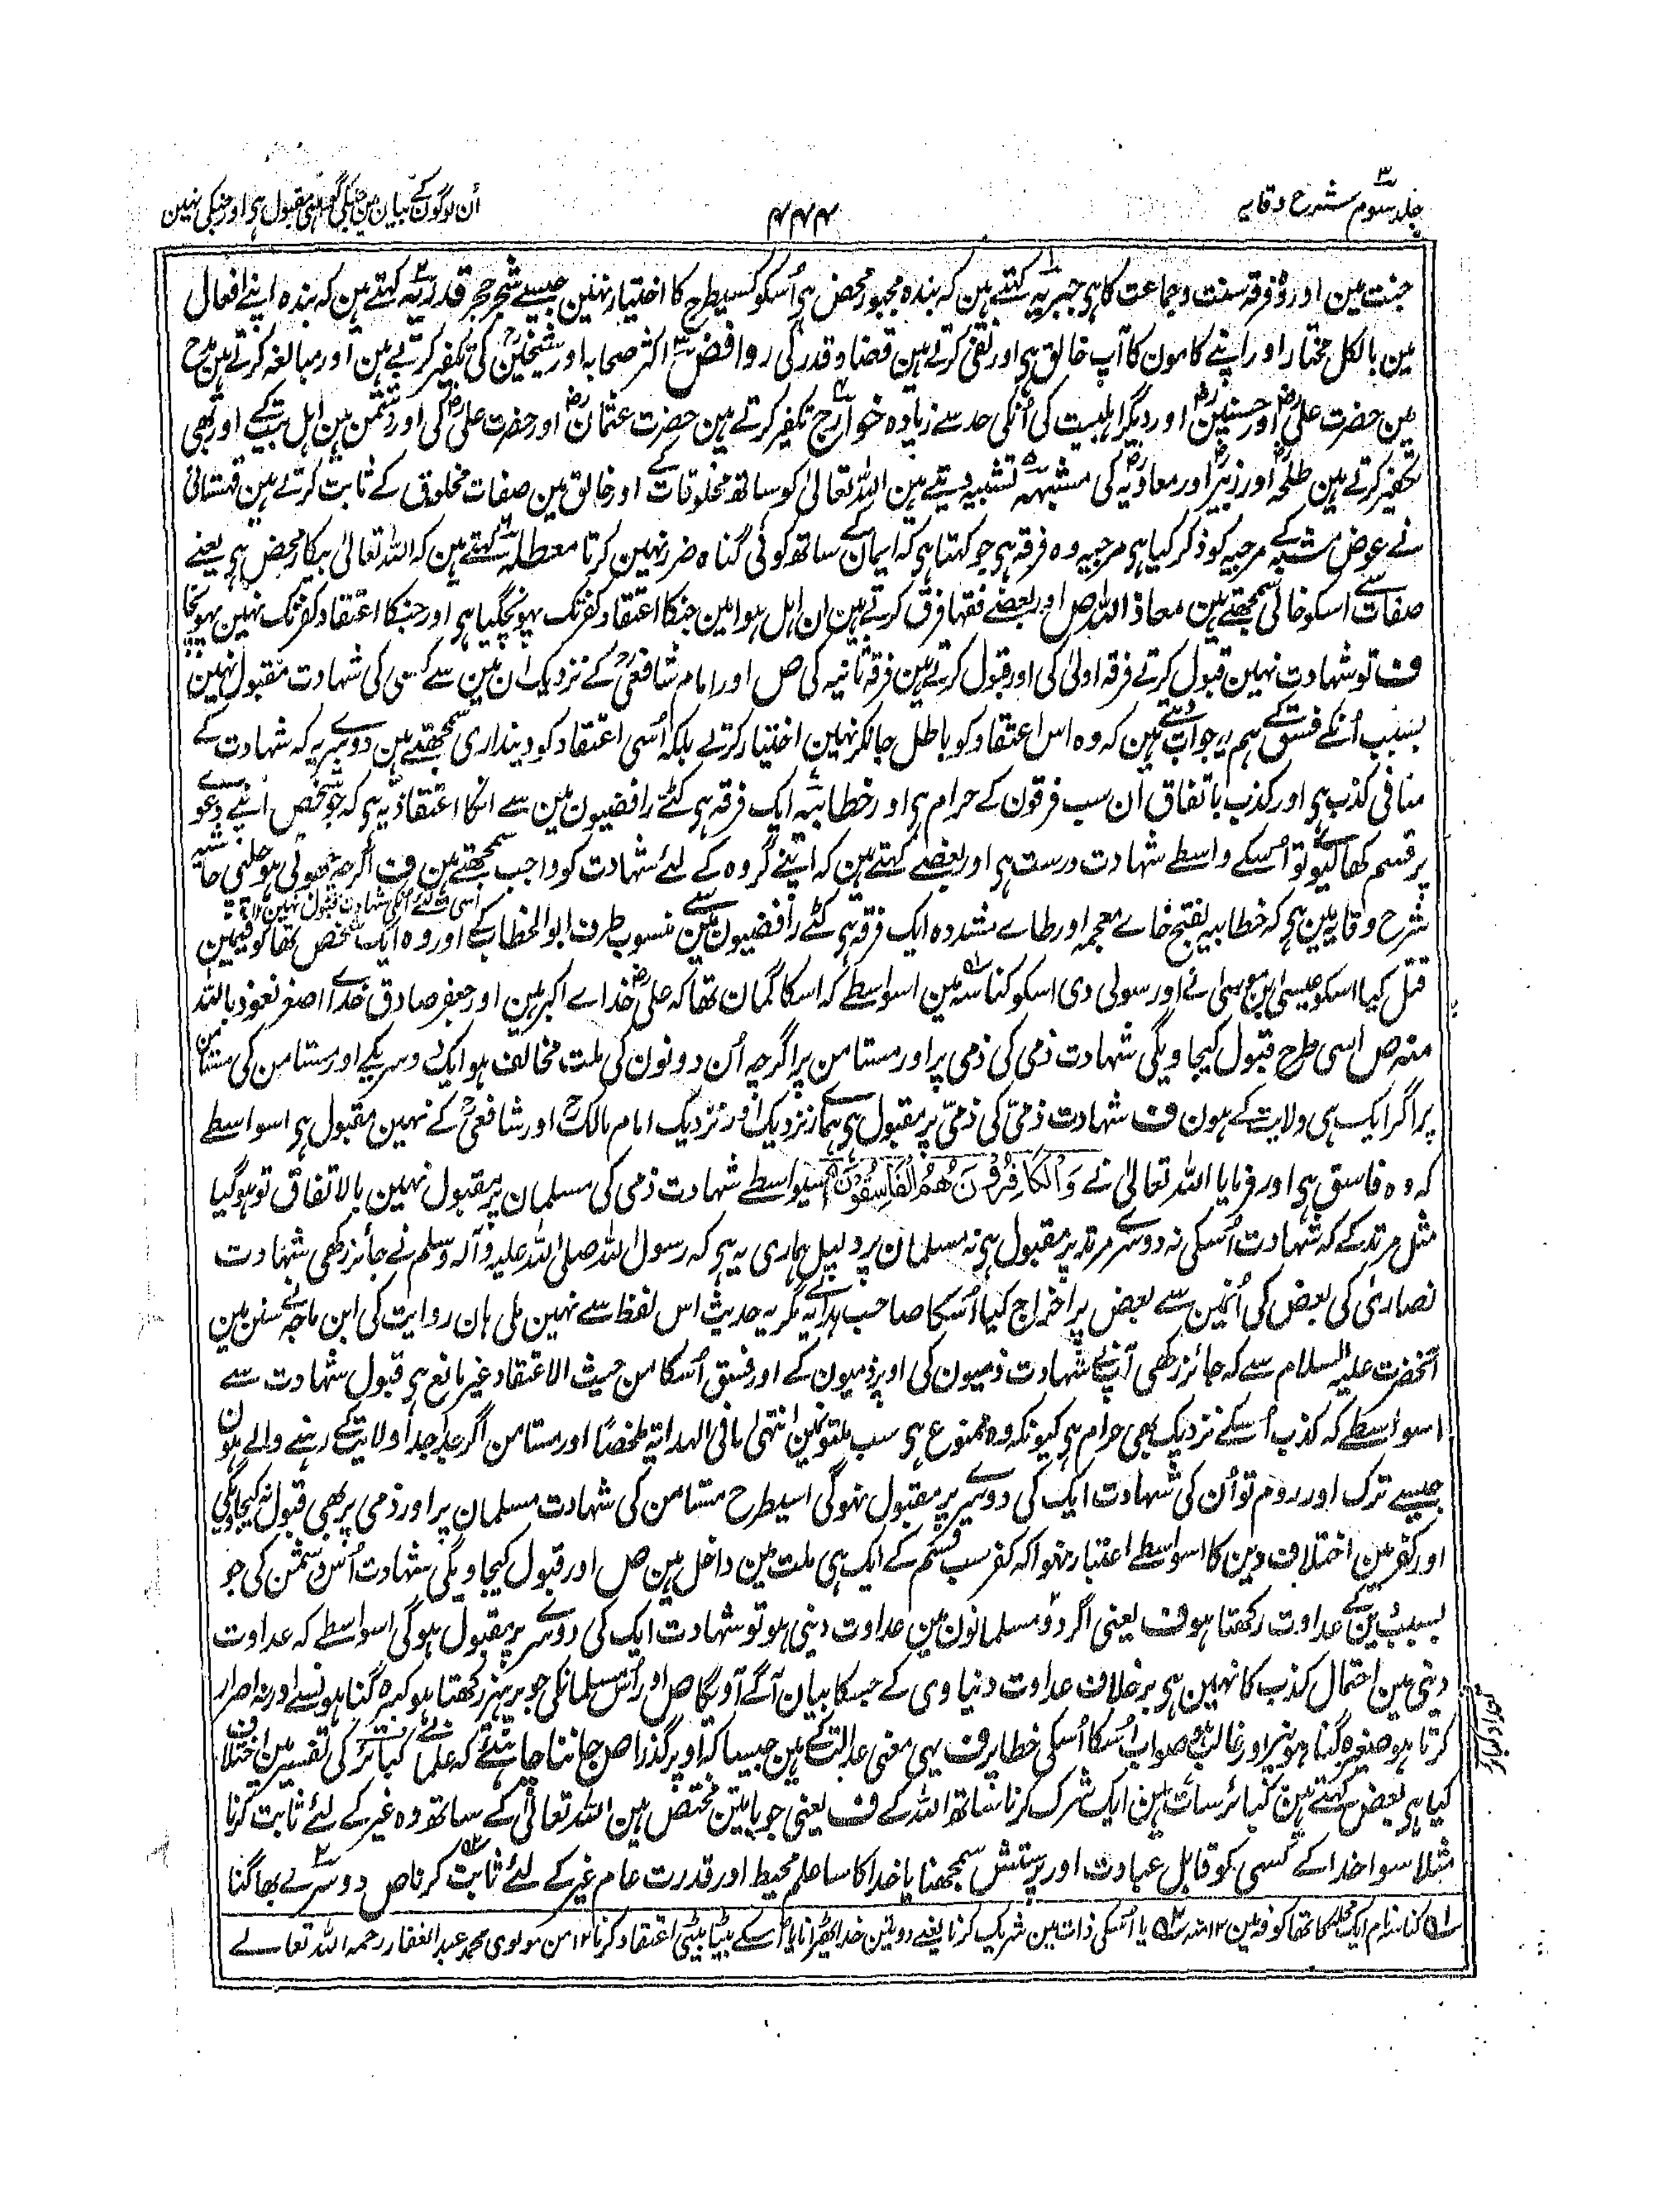 جلد سوم شرح وقایہ
۴۴۴
اُن لوگون کے بیان مین جنکی گواہی مقبول ہی اور جنکی نہین
جنت مین اور وہ فرقہ سنت وجماعت کا ہی جبریہ کہتے ہین کہ بندہ مجبور محض ہی اُسکو کسیطرح کا اختیار نہین جیسے شجر حجر قدریہ کہتے ہین کہ بندہ اپنے افعال
مین بالکل مختار اور اپنے کامون کا آپ خالق ہی اور نفی کرتے ہین قضا وقدر کی روافض اکثر صحابہ اور شیخین کی تکفیر کرتے ہین اور مبالغہ کرتے ہین مدح
مین حضرت علیؓ اور حسنینؓ اور دیگر اہلبیت کی اُنکی حد سے زیادہ خوارج تکفیر کرتے ہین حضرت عثمانؓ اور حضرت علیؓ کی اور دشمن ہین اہل بیت کے اور بھی
تکفیر کرتے ہین طلحہؓ اور زبیرؓ اور معاویہؓ کی مشبہہ تشبیہ دیتے ہین اللہ تعالیٰ کو ساتھ مخلوقات کے اور خالق مین صفات مخلوق کے ثابت کرتے ہین قہستانی
نے عوض مشبہہ کے مرجیہ کو ذکر کیا ہی مرجیہ وہ فرقہ ہی جو کہتا ہی کہ ایمان کے ساتھ کوئی گناہ ضرر نہین کرتا معطلہ کہتے ہین کہ اللہ تعالیٰ بیکار محض ہی یعنے
صفات سے اسکو خالی سمجھتے ہین معاذ اللہ ص اور بعضے فقہا فرق کرتے ہین ان اہل ہوا مین جنکا اعتقاد کفر تک پہونچگیا ہی اور جنکا اعتقاد کفر تک نہین پہونچا
ف تو شہادت نہین قبول کرتے فرقہ اولیٰ کی اور قبول کرتے ہین فرقہ ثانیہ کی ص اور امام شافعیؒ کے نزدیک ان مین سے کسی کی شہادت مقبول نہین
بسبب اُنکے فسق کے ہم یہ جواب دیتے ہین کہ وہ اس اعتقاد کو باطل جانکر نہین اختیار کرتے بلکہ اُسی اعتقاد کو دینداری سمجھتے ہین دوسرے یہ کہ شہادت کے
منافی کذب ہی اور کذب باتفاق ان سب فرقون کے حرام ہی اور خطابیہ ایک فرقہ ہی کٹے رافضیون مین سے انکا اعتقاد یہ ہی کہ جو شخص اپنے دعوے
پر قسم کھالیوے تو اُسکے واسطے شہادت درست ہی اور بعضے کہتے ہین کہ اپنے گروہ کے لئے شہادت کو واجب سمجھتے ہین ف اگرچہ جھوٹی ہو چلپی حاشیہ
اسی لئے اُنکی شہادت قبول نہین ۱۲
شرح وقایہ مین ہی کہ خطابیہ بفتح خاے معجمہ اور طاے مشددہ ایک فرقہ ہی کٹے رافضیون مین سے منسوب طرف ابو الخطاب کے اور وہ ایک شخص تھا کوفہ مین
قتل کیا اسکو عیسیٰ ابن موسیٰ نے اور سولی دی اسکو کناسہ مین اسواسطے کہ اسکا گمان تھا کہ علیؓ خداے اکبر ہین اور جعفر صادق خداے اصغر نعوذ باللہ
منہ ص اسی طرح قبول کیجاویگی شہادت ذمی کی ذمی پر اور مستامن پر اگرچہ اُن دونون کی ملت مخالف ہو ایک دوسریکے اور مستامن کی مستامن
پر اگر ایک ہی ولایت کے ہون ف شہادت ذمی کی ذمی پر مقبول ہی ہمارے نزدیک اور نزدیک امام مالکؒ اور شافعیؒ کے نہین مقبول ہی اسواسطے
کہ وہ فاسق ہی اور فرمایا اللہ تعالیٰ نے وَالْکَافِرُوْنَ هُمُ الْفَاسِقُوْنَ اسیواسطے شہادت ذمی کی مسلمان پر مقبول نہین بالاتفاق تو ہوگیا
مثل مرتد کے کہ شہادت اُسکی نہ دوسرے مرتد پر مقبول ہی نہ مسلمان پر دلیل ہماری یہ ہی کہ رسول اللہ صلی اللہ علیہ وآلہ وسلم نے جائز رکھی شہادت
نصاریٰ کی بعض کی اُنمین سے بعض پر اخراج کیا اُسکا صاحب ہدایہ نے مگر یہ حدیث اس لفظ سے نہین ملی ہان روایت کی ابن ماجہ نے سنن مین
آنحضرت علیہ السلام سے کہ جائز رکھی آپنے شہادت ذمیون کی اوپر ذمیون کے اور فسق اُسکا من حیث الاعتقاد غیر مانع ہی قبول شہادت سے
اسواسطے کہ کذب اُسکے نزدیک بھی حرام ہی کیونکہ وہ ممنوع ہی سب ملتون مین انتہیٰ مافی الہدایۃ ملخصاً اور مستامن اگر جدا جدا ولایت کے رہنے والے ہون
جیسے ترک اور روم تو اُن کی شہادت ایک کی دوسرے پر مقبول نہوگی اسیطرح مستامن کی شہادت مسلمان پر اور ذمی پر بھی قبول نہ کیجاویگی
اور کفر مین اختلاف دین کا اسواسطے اعتبار نہوا کہ کفر سب قسم کے ایک ہی ملت مین داخل ہین ص اور قبول کیجاویگی شہادت اُس دشمن کی جو
بسبب دین کے عداوت رکھتا ہو ف یعنی اگر دو مسلمانون مین عداوت دینی ہو تو شہادت ایک کی دوسرے پر مقبول ہوگی اسواسطے کہ عداوت
دینی مین احتمال کذب کا نہین ہی برخلاف عداوت دنیاوی کے جسکا بیان آگے آویگا ص اور اُس مسلمانکی جو پرہیز رکھتا ہو کبیرہ گناہونسے اور نہ اصرار
کرتا ہو صغیرہ گناہونپر اور غالب ہو صواب اُسکا اُسکی خطا پر ف یہی معنی عدالت کے ہین جیسا کہ اوپر گذرا ص جاننا چاہئے کہ علما نے کبائر کی تفسیر مین اختلاف
کیا ہی بعض کہتے ہین کبائر سات ہین ایک شرک کرنا ساتھ اللہ کے ف یعنی جو باتین مختص ہین اللہ تعالیٰ کے ساتھ وہ غیر کے لئے ثابت کرنا
مثلا سوا خدا کے کسی کو قابل عبادت اور پرستش سمجھنا یا خدا کا سا علم محیط اور قدرت عام غیر کے لئے ثابت کرنا ص دوسرے بھاگنا
تعداد کبائر
۱ کناسہ نام ایک محلہ کا تھا کوفہ مین ۱۲ منہ ۲ یا اُسکی ذات مین شریک کرنا یعنے دو تین خدا ٹھیرانا یا اُسکے بیٹا بیٹی اعتقاد کرنا ۱۲ من مولوی محمد عبد الغفار رحمہ اللہ تعالے